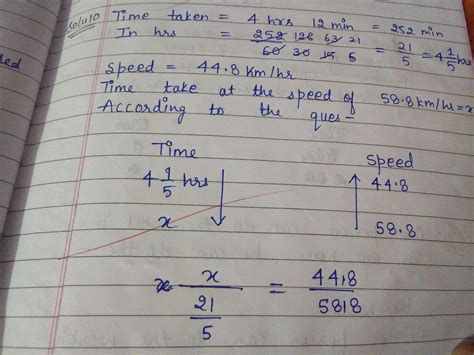 Solu10 Time taken = 4 hrs 12 min = 252 min
In hrs = 252 126 63 21 / 60 30 15 5 = 21/5 = 4 1/5 hrs
Speed = 44.8 km/hr
Time take at the speed of 58.8 km/hr = x
According to the ques -
Time Speed
4 1/5 hrs 44.8
x 58.8
x / 21/5 = 44.8 / 58.8